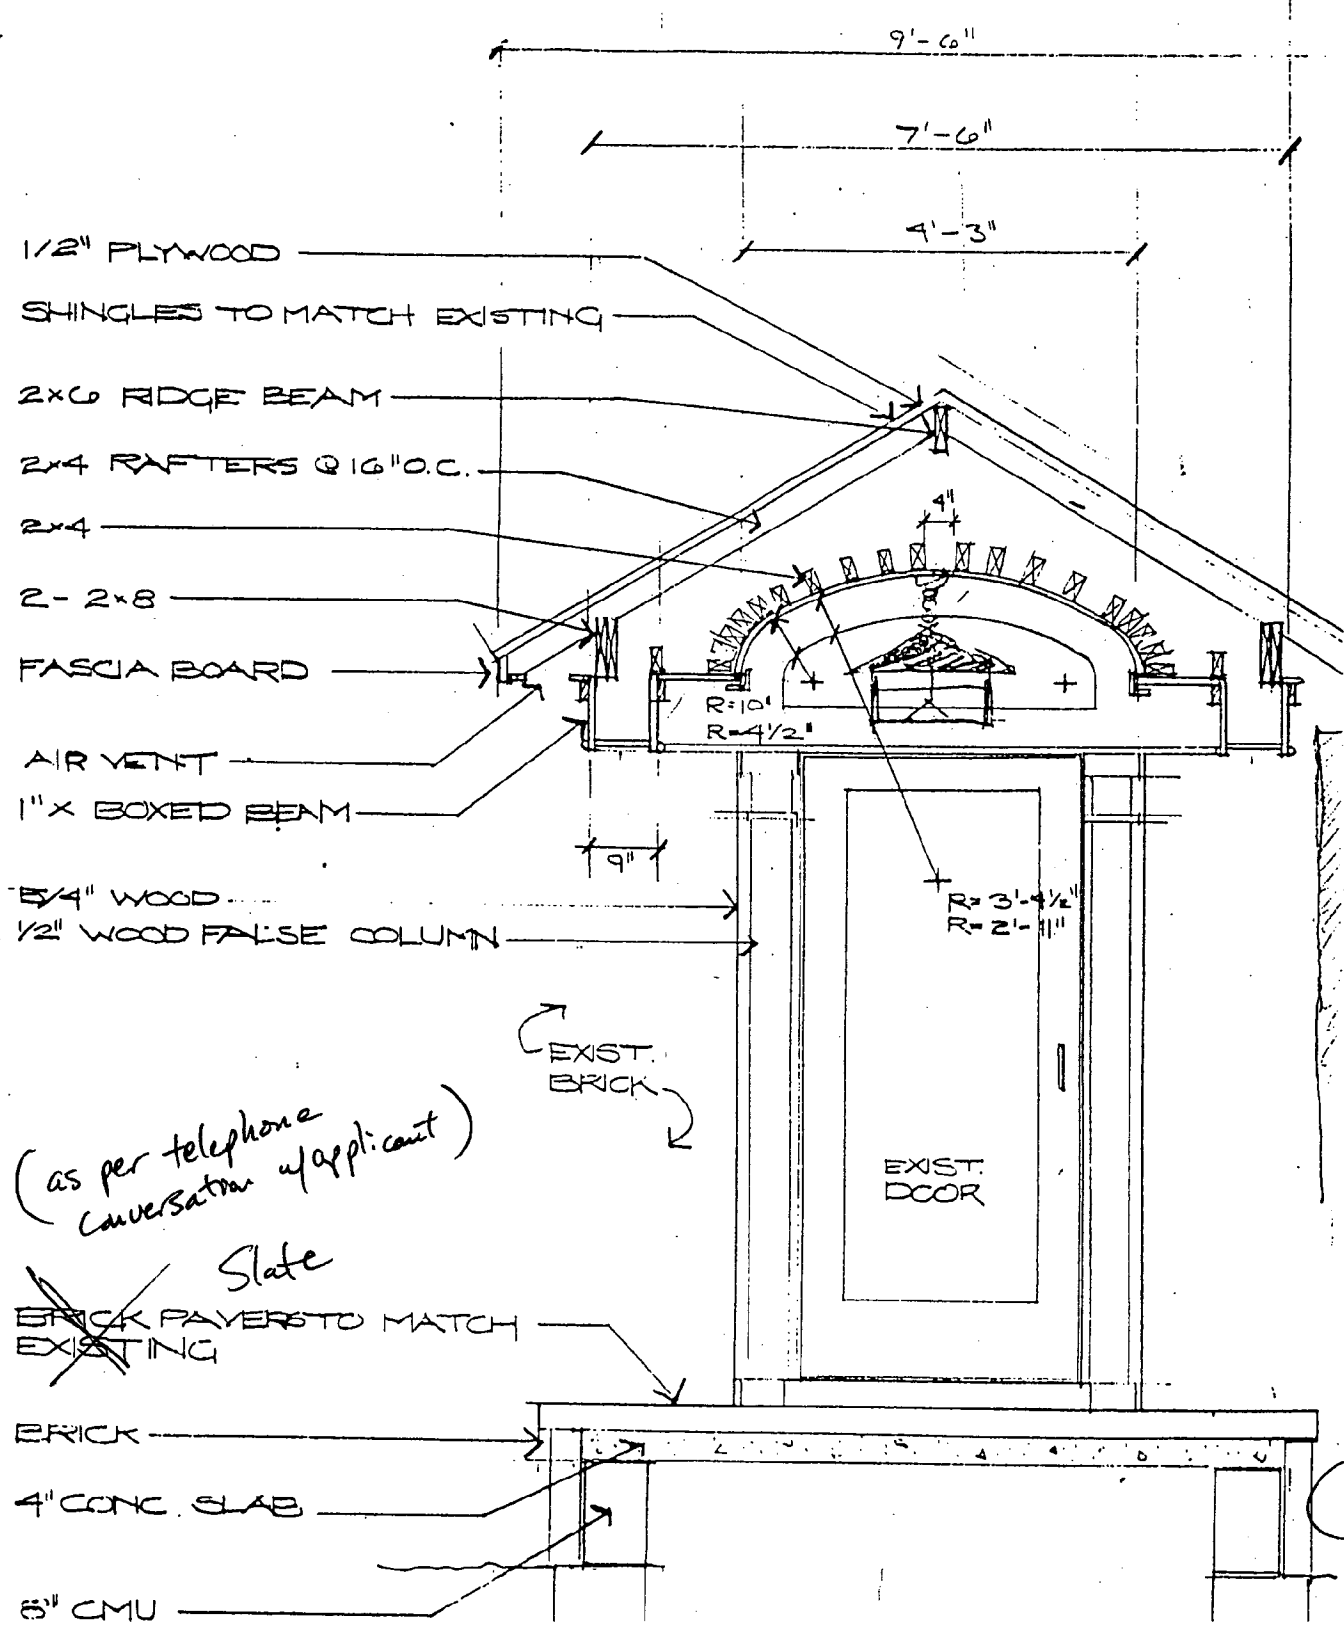 9'-6"
7'-6"
4'-3"
1/2" PLYWOOD
SHINGLES TO MATCH EXISTING
2x6 RIDGE BEAM
2x4 RAFTERS @ 16" O.C.
4"
2x4
2- 2x8
FASCIA BOARD
R=10"
R=4 1/2"
AIR VENT
1" x BOXED BEAM
9"
5/4" WOOD
1/2" WOOD FALSE COLUMN
R= 3'-4 1/2"
R= 2'-11"
EXIST.
BRICK
(as per telephone
conversation w/applicant)
EXIST.
DOOR
Slate
BRICK PAVERS TO MATCH
EXISTING
BRICK
4" CONC. SLAB
8" CMU